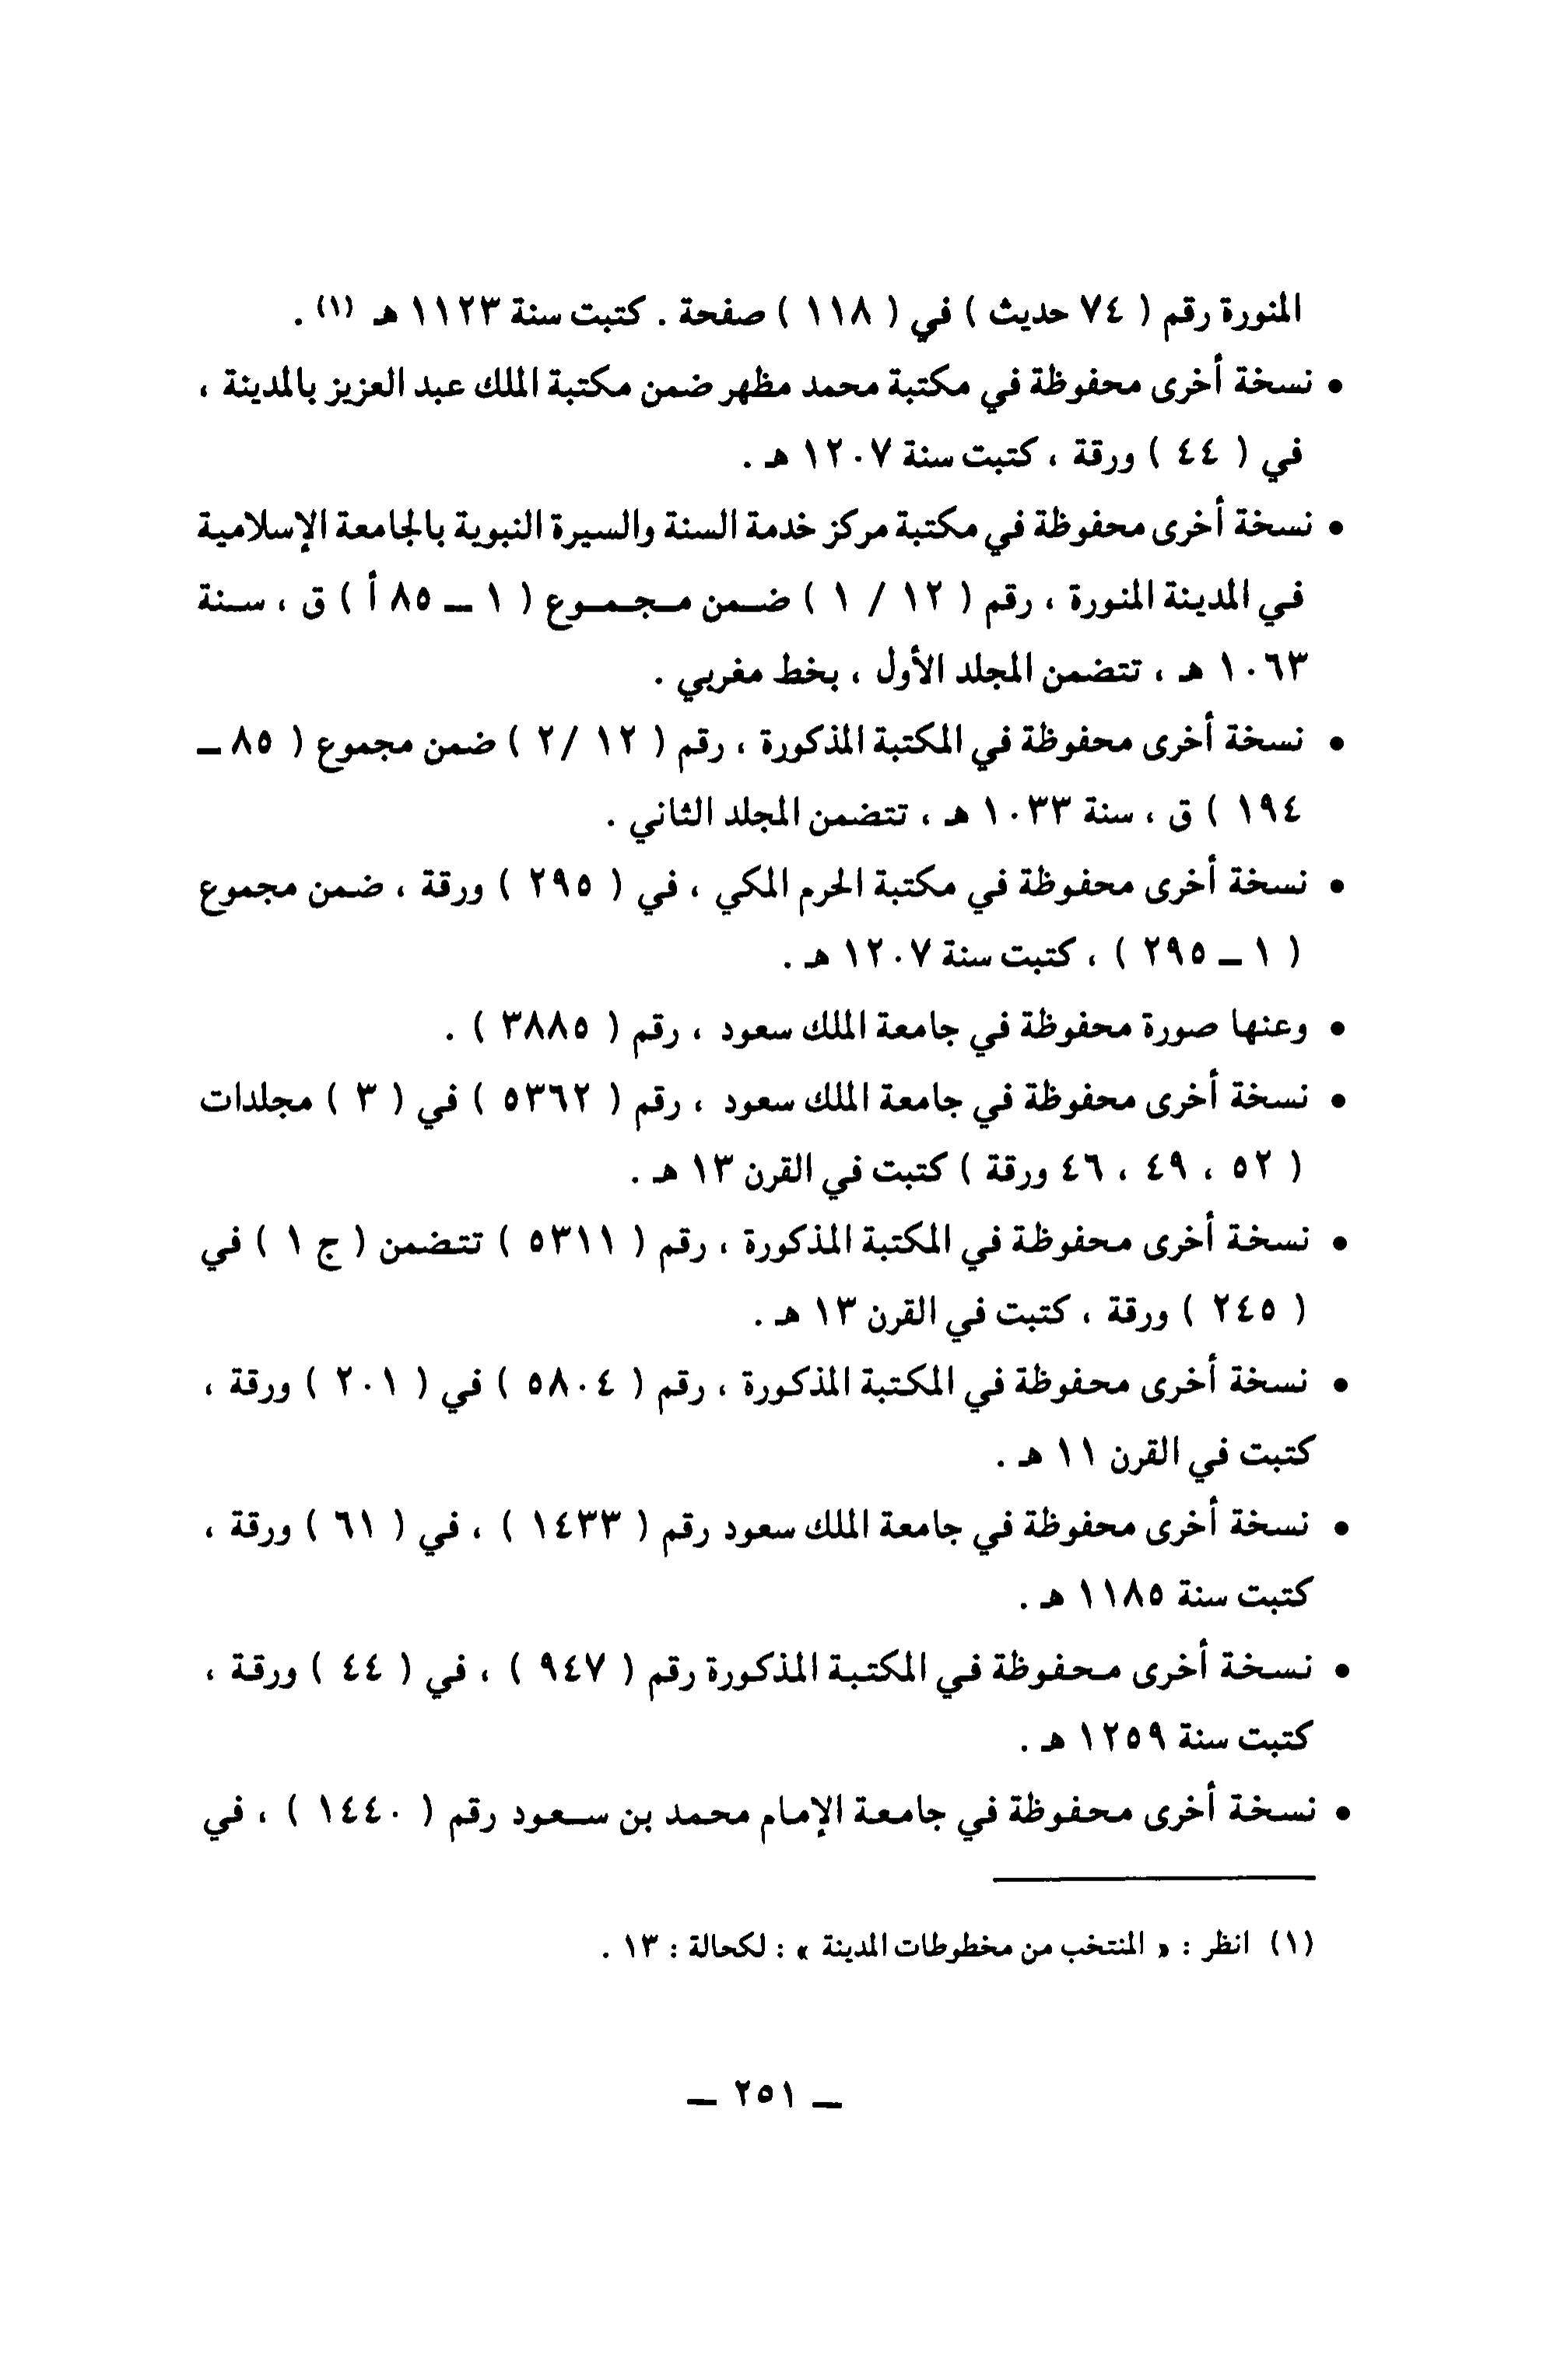 المنورة رقم ( ٧٤ حديث ) في ( ١١٨ ) صفحة . كتبت سنة ١١٢٣ هـ (١) .
• نسخة أخرى محفوظة في مكتبة محمد مظهر ضمن مكتبة الملك عبد العزيز بالمدينة ،
في ( ٤٤ ) ورقة ، كتبت سنة ١٢٠٧ هـ .
• نسخة أخرى محفوظة في مكتبة مركز خدمة السنة والسيرة النبوية بالجامعة الإسلامية
في المدينة المنورة ، رقم ( ١٢ / ١ ) ضمن مجموع ( ١ – ٨٥ أ ) ق ، سنة
١٠٦٣ هـ ، تتضمن المجلد الأول ، بخط مغربي .
• نسخة أخرى محفوظة في المكتبة المذكورة ، رقم ( ١٢ /٢ ) ضمن مجموع ( ٨٥ –
١٩٤ ) ق ، سنة ١٠٣٣ هـ ، تتضمن المجلد الثاني .
• نسخة أخرى محفوظة في مكتبة الحرم المكي ، في ( ٢٩٥ ) ورقة ، ضمن مجموع
( ١ – ٢٩٥ ) ، كتبت سنة ١٢٠٧ هـ .
• وعنها صورة محفوظة في جامعة الملك سعود ، رقم ( ٣٨٨٥ ) .
• نسخة أخرى محفوظة في جامعة الملك سعود ، رقم ( ٥٣٦٢ ) في ( ٣ ) مجلدات
( ٥٢ ، ٤٩ ، ٤٦ ورقة ) كتبت في القرن ١٣ هـ .
• نسخة أخرى محفوظة في المكتبة المذكورة ، رقم ( ٥٣١١ ) تتضمن ( ج ١ ) في
( ٢٤٥ ) ورقة ، كتبت في القرن ١٣ هـ .
• نسخة أخرى محفوظة في المكتبة المذكورة ، رقم ( ٥٨٠٤ ) في ( ٢٠١ ) ورقة ،
كتبت في القرن ١١ هـ .
• نسخة أخرى محفوظة في جامعة الملك سعود رقم ( ١٤٣٣ ) ، في ( ٦١ ) ورقة ،
كتبت سنة ١١٨٥ هـ .
• نسخة أخرى محفوظة في المكتبة المذكورة رقم ( ٩٤٧ ) ، في ( ٤٤ ) ورقة ،
كتبت سنة ١٢٥٩ هـ .
• نسخة أخرى محفوظة في جامعة الإمام محمد بن سعود رقم ( ١٤٤٠ ) ، في
(١) انظر : « المنتخب من مخطوطات المدينة » : لكحالة : ١٣ .
– ٢٥١ –